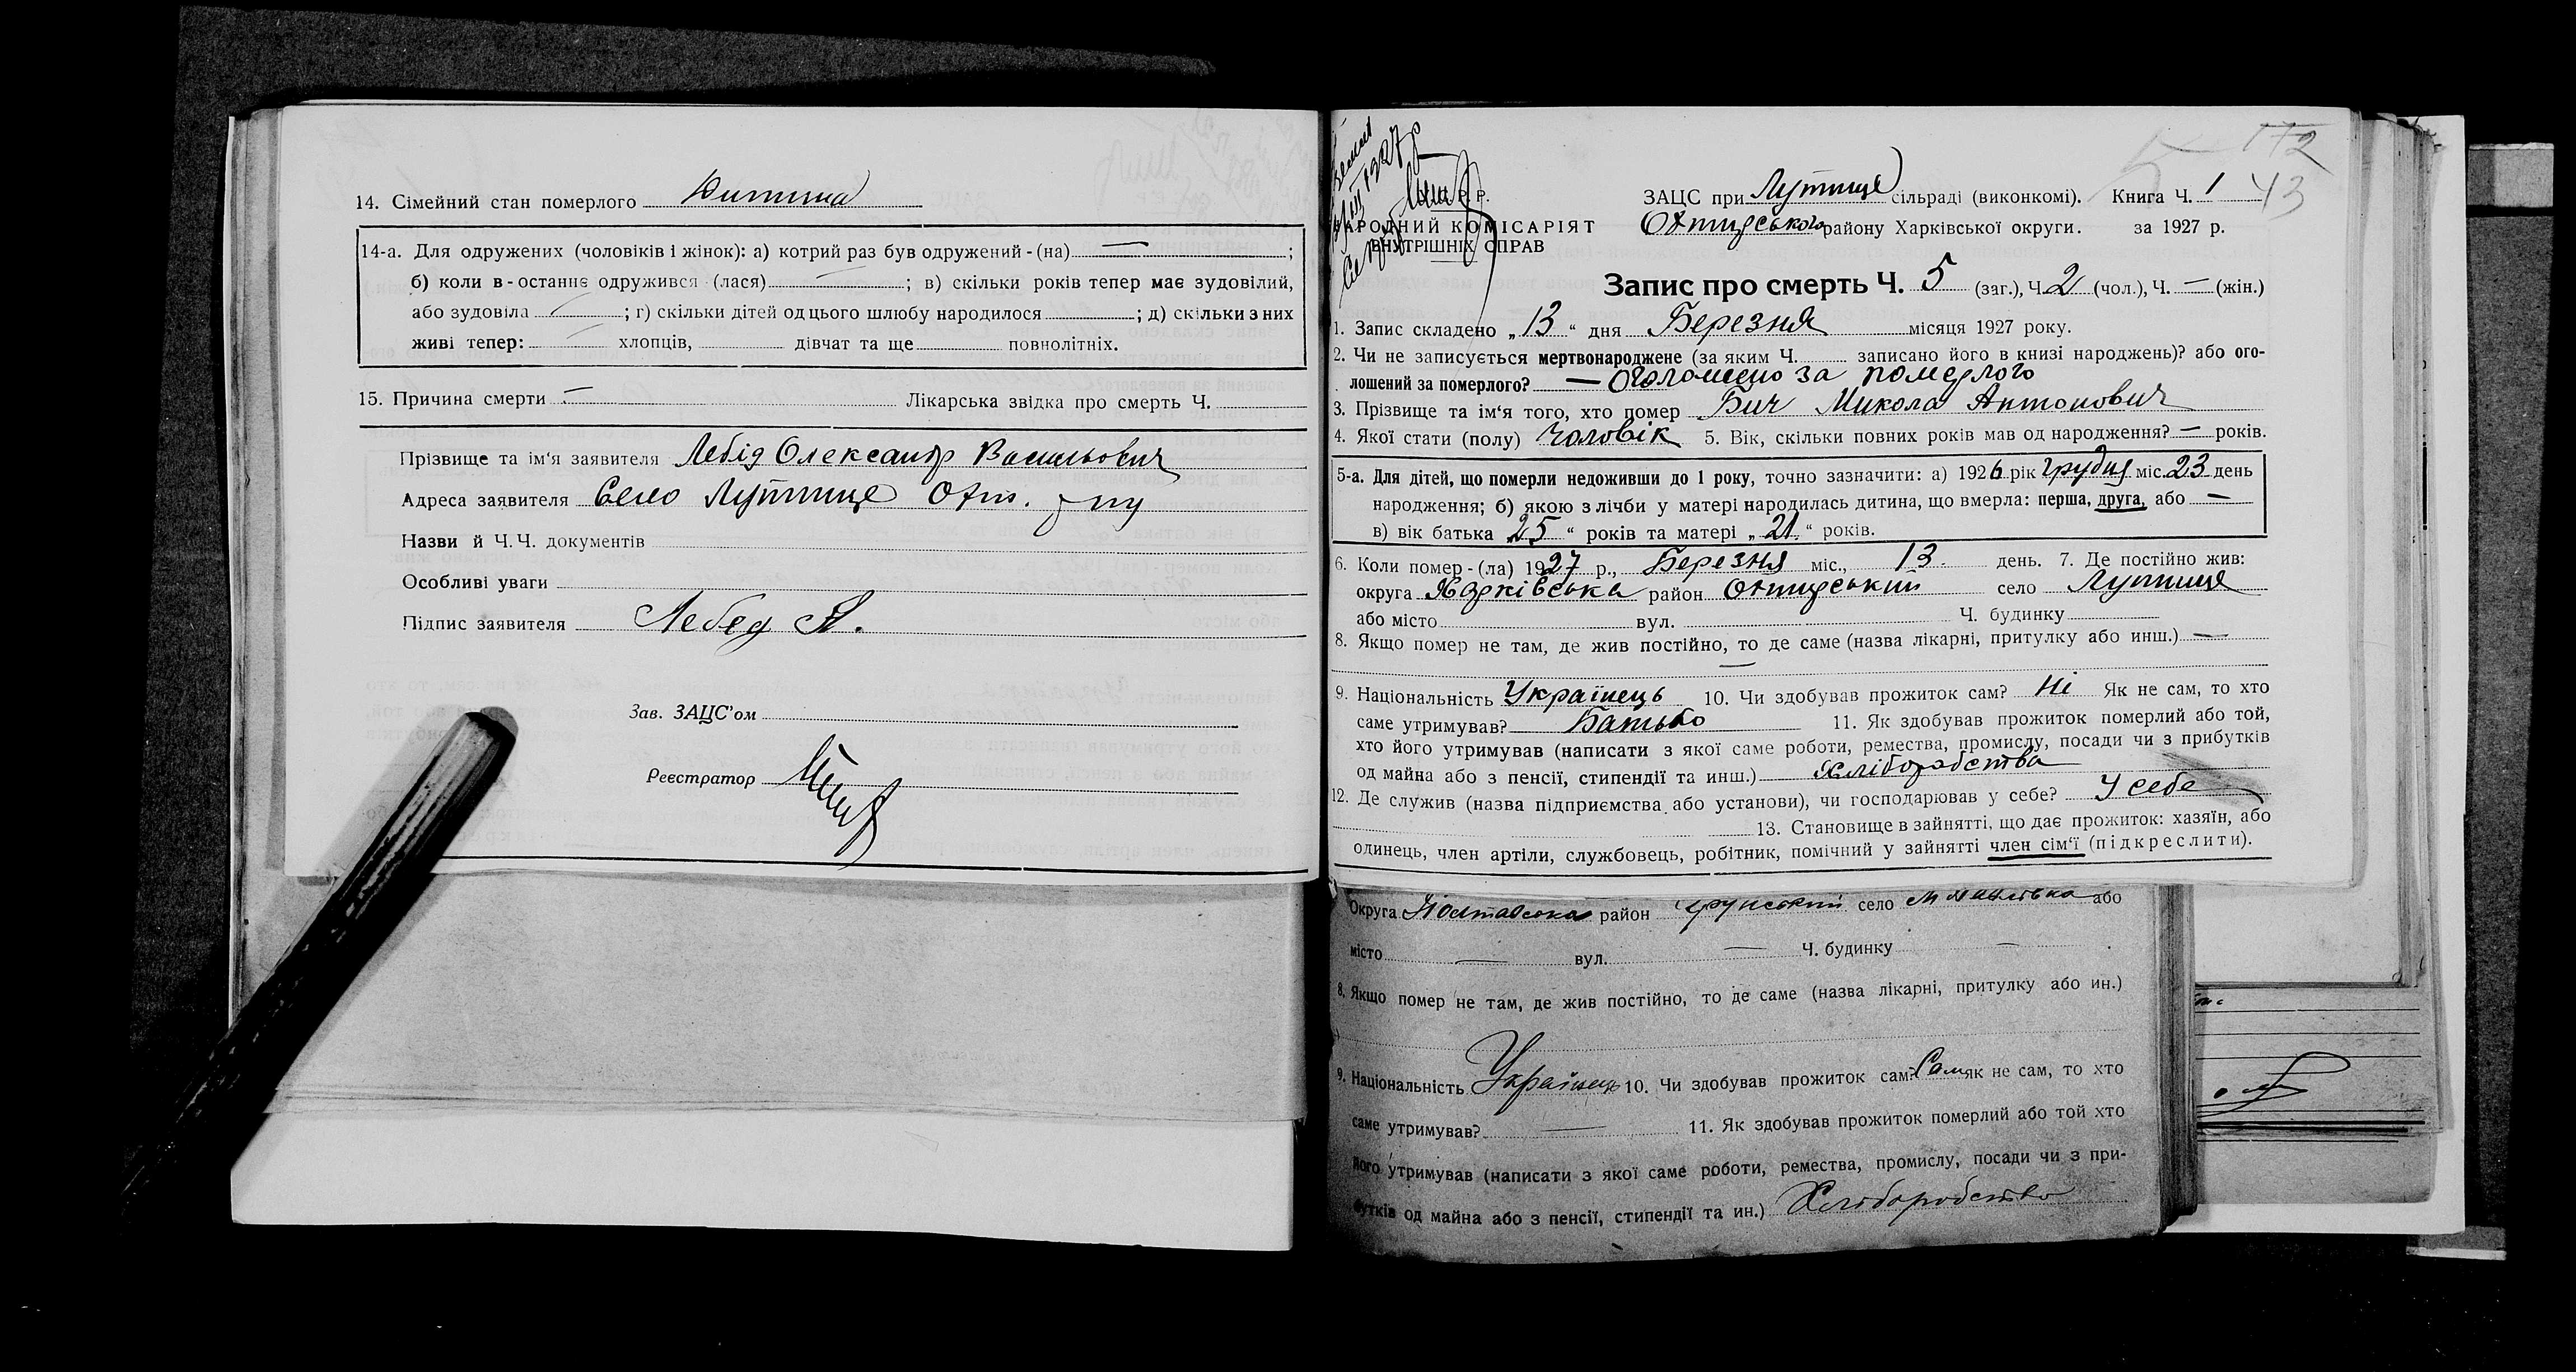 14. Сімейний стан померлого Дитина
14-а. Для одружених (чоловіків і жінок): а) котрий раз був одружений-(на) — ;
б) коли в-останнє одружився (лася) — ; в) скільки років тепер має зудовілий,
або зудовіла — ; г) скільки дітей од цього шлюбу народилося ; д) скільки з них
живі тепер: — хлопців, дівчат та ще повнолітніх.
15. Причина смерти — Лікарська звідка про смерть Ч.
Прізвище та ім'я заявителя Лебід Олександр Васильович
Адреса заявителя Село Лутище Охт. р-ну
Назви й Ч.Ч. документів
Особливі уваги
Підпис заявителя Лебед А.
Зав. ЗАЦС'ом
Реєстратор
172
43
Р.Р.
НАРОДНИЙ КОМІСАРІЯТ
ВНУТРІШНІХ СПРАВ
ЗАЦС при Лутище сільраді (виконкомі). Книга Ч. 1
Охтирського району Харківської округи. за 1927 р.
Запис про смерть Ч. 5 (заг.), Ч. 2 (чол.), Ч. — (жін.)
1. Запис складено „13“ дня Березня місяця 1927 року.
2. Чи не записується мертвонароджене (за яким Ч. записано його в книзі народжень)? або ого-
лошений за померлого? — Оголошено за померлого
3. Прізвище та ім'я того, хто помер Бич Микола Антонович
4. Якої стати (полу) Чоловік 5. Вік, скільки повних років мав од народження? — років.
5-а. Для дітей, що померли недоживши до 1 року, точно зазначити: а) 1926 рік Грудня міс. 23 день
народження; б) якою з лічби у матері народилась дитина, що вмерла: перша, друга, або —
в) вік батька „25“ років та матері „21“ років.
6. Коли помер-(ла) 1927 р., Березня міс., 13. день. 7. Де постійно жив:
округа Харківська район Охтирський село Лутище
або місто вул. Ч. будинку
8. Якщо помер не там, де жив постійно, то де саме (назва лікарні, притулку або инш.) —
—
9. Національність Українець 10. Чи здобував прожиток сам? Ні Як не сам, то хто
саме утримував? Батько 11. Як здобував прожиток померлий або той,
хто його утримував (написати з якої саме роботи, ремества, промислу, посади чи з прибутків
од майна або з пенсії, стипендії та инш.) Хліборобства
12. Де служив (назва підприємства або установи), чи господарював у себе? У себе
13. Становище в зайнятті, що дає прожиток: хазяїн, або
одинець, член артіли, службовець, робітник, помічний у зайнятті член сім'ї (підкреслити).
Округа Полтавська район Грунський село або
місто — вул. — Ч. будинку —
8. Якщо помер не там, де жив постійно, то де саме (назва лікарні, притулку або ин.)
9. Національність Українець 10. Чи здобував прожиток сам? Сам як не сам, то хто
саме утримував? — 11. Як здобував прожиток померлий або той хто
його утримував (написати з якої саме роботи, ремества, промислу, посади чи з при-
бутків од майна або з пенсії, стипендії та ин.) Хліборобство